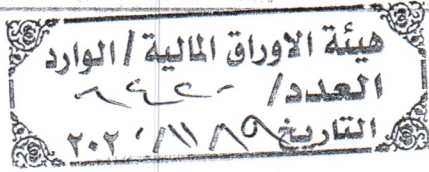 هيئة الاوراق المالية / الوارد
العدد /
التاريخ ١٩ / ١١ / ٢٠٢٠